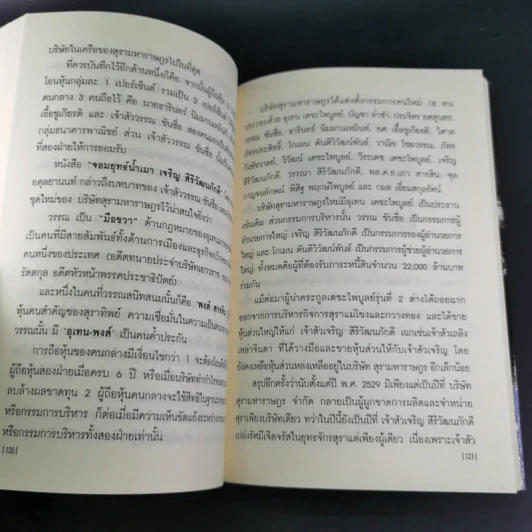 บริษัทในเครือของสุรามหาราษฎรไปในที่สุด
ที่ควรบันทึกไว้อีกด้านหนึ่งก็คือ จากนั้นผู้ถือ
โอนหุ้นกลุ่มละ 1 เปอร์เซ็นต์ รวมเป็น 2 เปอร์เซ็นต์
คนกลาง 3 คนถือไว้ คือ นายธารินทร์ นิมมานเหมินท์
เอื้อชูเกียรติ และเจ้าสัววรรณ ชันซื่อ สองคนแรก
กลุ่มธนาคารพาณิชย์ ส่วน เจ้าสัววรรณ ชันซื่อ นั้นเป็น
ที่สองฝ่ายให้การยอมรับ
หนังสือ "จอมยุทธ์น้ำเมา เจริญ สิริวัฒนภักดี"
อดุลยานนท์ กล่าวถึงบทบาทของ เจ้าสัววรรณ ชันซื่อ
ชุดใหม่ของ บริษัทสุรามหาราษฎรไว้น่าสนใจยิ่งว่า
วรรณ เป็น "มือขวา" ด้านกฎหมายของอุเทน
เป็นคนที่มีสายสัมพันธ์ทั้งด้านการเมืองและธุรกิจกว้างขวาง
คนหนึ่งของประเทศ (อดีตทนายประจำบริษัทเยาวราช
รัตตกุล อดีตหัวหน้าพรรคประชาธิปัตย์)
และหนึ่งในคนที่วรรณสนิทสนมนั้นก็คือ "พงส์ สารสิน"
หุ้นคนสำคัญของสุราทิพย์ ความเชื่อมั่นในความเป็นคนกลาง
วรรณนั้น มี "อุเทน-พงส์" เป็นคนค้ำประกัน
การถือหุ้นของคนกลางมีเงื่อนไขว่า 1 จะต้องโอนคืน
ผู้ถือหุ้นสองฝ่ายเมื่อครบ 6 ปี หรือเมื่อบริษัททำกำไรจน
ลบล้างผลขาดทุน 2 ผู้ถือหุ้นคนกลางจะใช้สิทธิในฐานะ
หรือกรรมการบริหาร ก็ต่อเมื่อมีความเห็นขัดแย้งระหว่าง
หรือกรรมการบริหารทั้งสองฝ่ายเท่านั้น
|120|
บริษัทสุรามหาราษฎรได้แต่งตั้งกรรมการคนใหม่ 18 คน
ประกอบด้วย อุเทน เตชะไพบูลย์, บัญชา ล่ำซำ, ประจิตร ยศสุนทร,
วรรณ ชันซื่อ, ธารินทร์ นิมมานเหมินท์, ยศ เอื้อชูเกียรติ, วิศาล
ภัทรประสิทธิ์, โกเมน ตันติวิวัฒนพันธ์, วานิช ไชยวรรณ, ภัทร
กึงชัชวาลย์, วิวัฒน์ เตชะไพบูลย์, วีระเดช เตชะไพบูลย์, เจริญ
สิริวัฒนภักดี, วรรณา สิริวัฒนภักดี, พล.ต.อ.เภา สารสิน, จุล
กาญจนลักษณ์, พิสิฐ พฤกษ์ไพบูลย์ และ กมล เอี้ยมสกุลรัตน์
บริษัทสุรามหาราษฎรใหม่มีอุเทน เตชะไพบูลย์ เป็นประธาน
เช่นเดิม ส่วนกรรมการบริหารนั้น วรรณ ชันซื่อ เป็นกรรมการผู้
อำนวยการใหญ่ เจริญ สิริวัฒนภักดี เป็นกรรมการรองผู้อำนวยการ
ใหญ่ และ โกเมน ตันติวิวัฒนพันธ์ เป็นกรรมการผู้ช่วยผู้อำนวยการ
ใหญ่ ทั้งหมดคือผู้ที่ต้องรับภาระหนี้สินจำนวน 22,000 ล้านบาท
ร่วมกัน
แม้ต่อมาผู้นำตระกูลเตชะไพบูลย์รุ่นที่ 2 ต่างได้ถอยฉาก
ออกจากการบริหารกิจการสุราแม่โขงและกวางทอง และได้ขาย
หุ้นส่วนใหญ่ให้แก่ เจ้าสัวเจริญ สิริวัฒนภักดี เฉกเช่นเจ้าสัวเถลิง
เหล่าจินดา ที่ได้วางมือและขายหุ้นส่วนให้กับเจ้าสัวเจริญ โดย
ยังคงเหลือหุ้นส่วนหลงเหลืออยู่ในบริษัท สุรามหาราษฎร อีกเล็กน้อย
สรุปอีกครั้งว่านับตั้งแต่ปี พ.ศ. 2529 มิเพียงแต่เป็นปีที่ บริษัท
สุรามหาราษฎร จำกัด กลายเป็นผู้ผูกขาดการผลิตและจำหน่าย
สุราเพียงบริษัทเดียว ทว่าในปีนี้ยังเป็นปีที่ เจ้าสัวเจริญ สิริวัฒนภักดี
เปล่งรัศมีเจิดจรัสในยุทธจักรสุราแต่เพียงผู้เดียว เนื่องเพราะเจ้าสัว
|121|